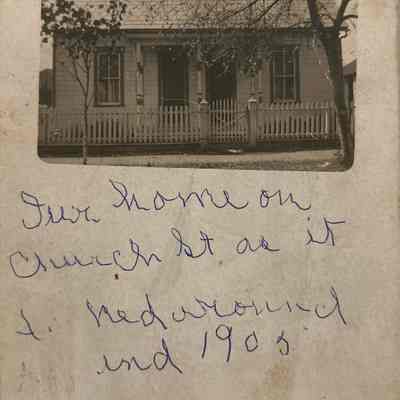 Our home on
Church St. as it
ned around
and 1905